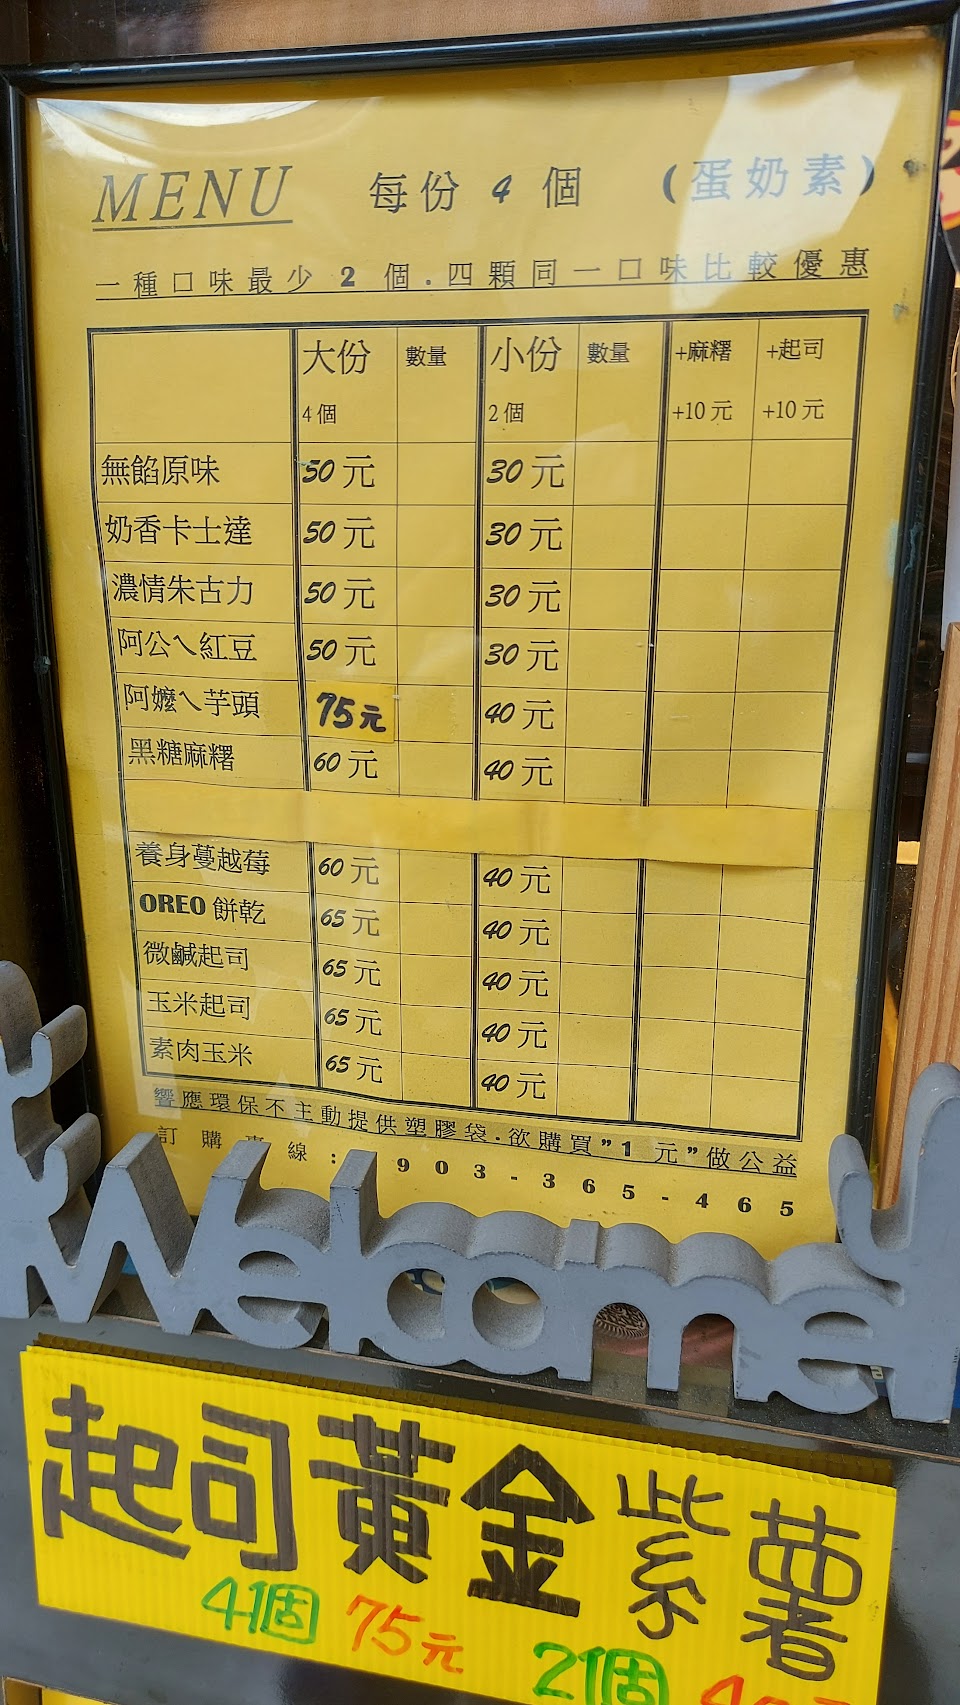 MENU 每份 4 個 (蛋奶素)
一種口味最少 2 個.四顆同一口味比較優惠
大份 數量 小份 數量 +麻糬 +起司
4個 2個 +10元 +10元
無餡原味 50元 30元
奶香卡士達 50元 30元
濃情朱古力 50元 30元
阿公ㄟ紅豆 50元 30元
阿嬤ㄟ芋頭 75元 40元
黑糖麻糬 60元 40元
養身蔓越莓 60元 40元
OREO餅乾 65元 40元
微鹹起司 65元 40元
玉米起司 65元 40元
素肉玉米 65元 40元
響應環保不主動提供塑膠袋.欲購買"1 元"做公益
訂購專線: 903-365-465
Welcome
起司黃金紫薯
4個 75元 2個